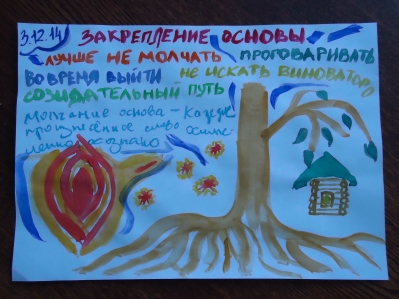 3.12.14 ЗАКРЕПЛЕНИЕ ОСНОВЫ
ЛУЧШЕ НЕ МОЛЧАТЬ ПРОГОВАРИВАТЬ
ВО ВРЕМЯ ВЫЙТИ НЕ ИСКАТЬ ВИНОВАТОГО
СОЗИДАТЕЛЬНЫЙ ПУТЬ
Молчание основа - Каждое
произнесённое слово осмыс-
ленно осознано